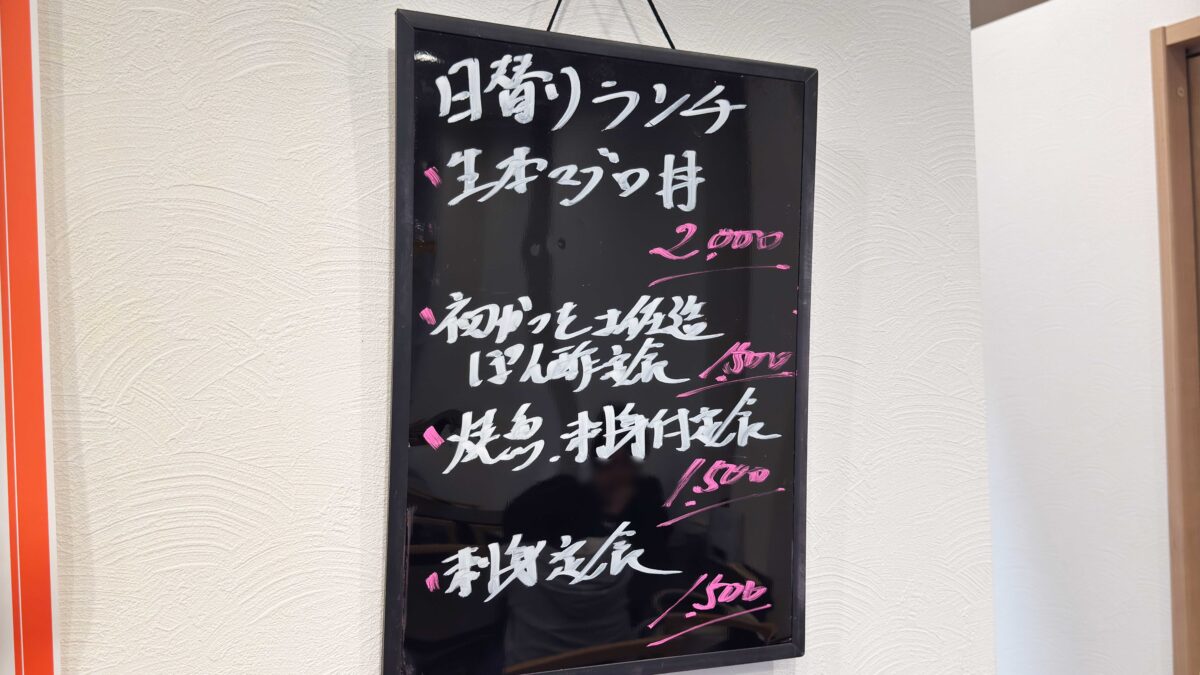 日替りランチ
生本マグロ丼
2,000
初かつを土佐造
ぽん酢定食 1,500
焼魚.刺身付定食
1,500
刺身定食
1,500